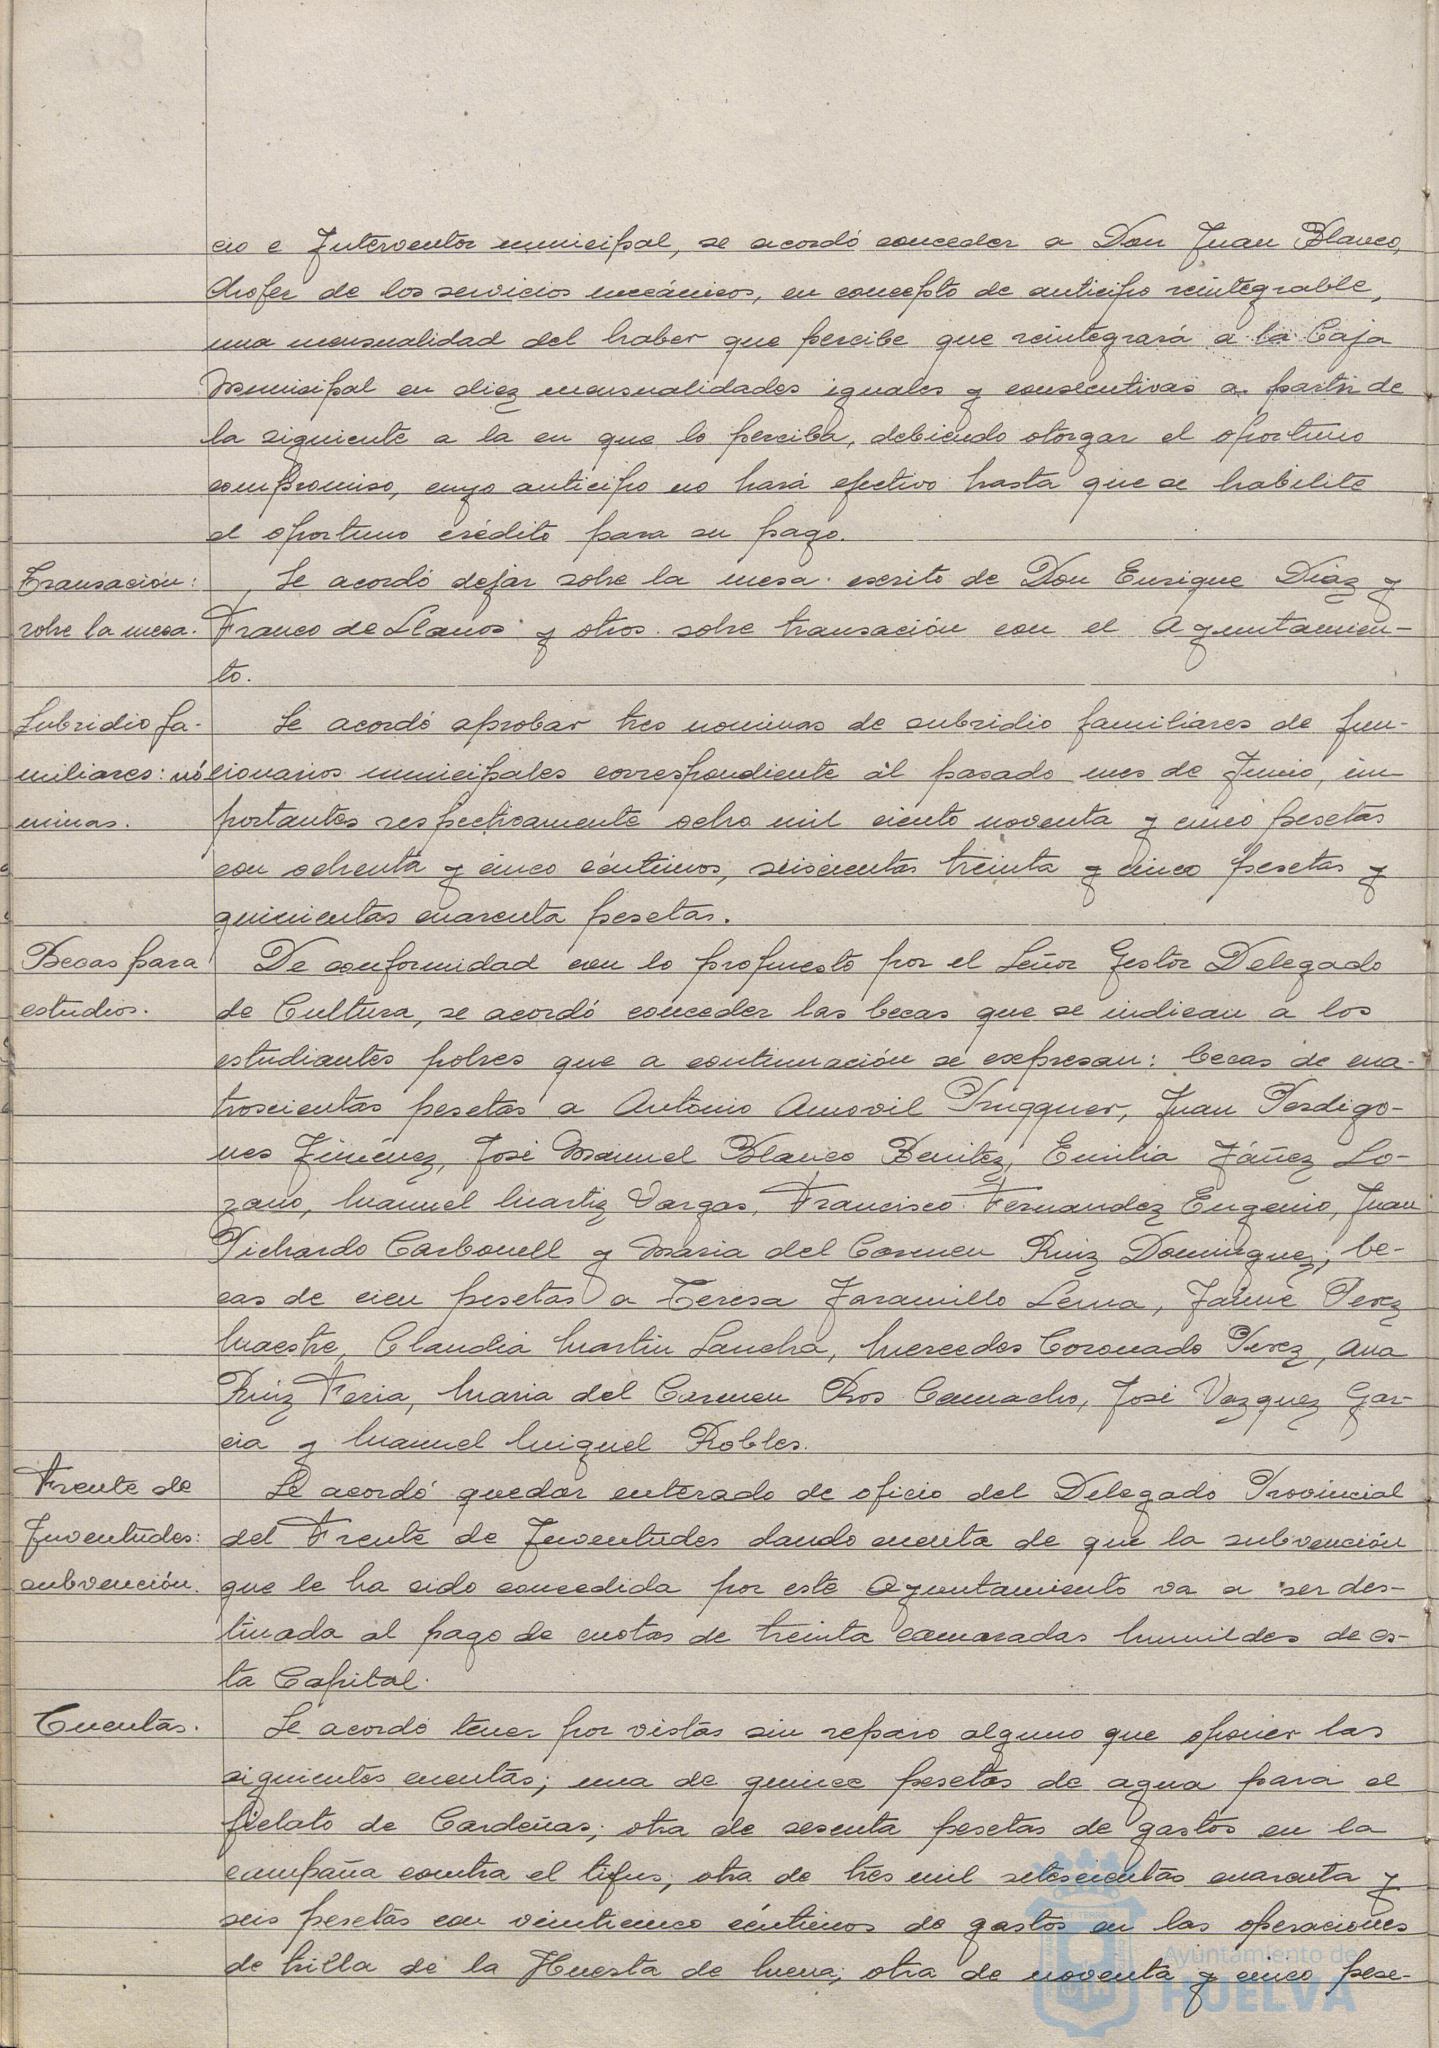 cio e Interventor municipal, se acordó conceder a Don Juan Blanco,
chofer de los servicios mecánicos, en concepto de anticipo reintegrable,
una mensualidad del haber que percibe que reintegrará a la Caja
Municipal en diez mensualidades iguales y consecutivas a partir de
la siguiente a la en que lo perciba, debiendo otorgar el oportuno
compromiso, cuyo anticipo no hará efectivo hasta que se habilite
el oportuno crédito para su pago.
Transación:
sobre la mesa.
Se acordó dejar sobre la mesa escrito de Don Enrique Díaz y
Franco de Llanos y otros sobre transación con el Ayuntamien-
to.
Subsidio fa-
miliares: nó
minas.
Se acordó aprobar tres nominas de subsidio familiares de fun-
cionarios municipales correspondiente al pasado mes de Junio, im-
portantes respectivamente ocho mil ciento noventa y cinco pesetas
con ochenta y cinco céntimos, seiscientas treinta y cinco pesetas y
quinientas cuarenta pesetas.
Becas para
estudios.
De conformidad con lo propuesto por el Señor Gestor Delegado
de Cultura, se acordó conceder las becas que se indican a los
estudiantes pobres que a continuación se expresan: becas de cua-
troscientas pesetas a Antonio Amovil, Juan Perdigo-
nes Jiménez, José Manuel Blanco Benitez, Emilia Jáñez Lo-
zano, Manuel Martiz Vargas, Francisco Fernandez Eugenio, Juan
Pichardo Carbonell y Maria del Carmen Ruiz Dominguez; be-
cas de cien pesetas a Teresa Jaramillo Lema, Jaime Perez
Maestre, Claudia Martin Sancha, Mercedes Coronado Perez, Ana
Ruiz Feria, Maria del Carmen Ros Camacho, José Vazquez Gar-
cia y Manuel Miguel Robles.
Frente de
Juventudes:
subvención.
Se acordó quedar enterado de oficio del Delegado Provincial
del Frente de Juventudes dando cuenta de que la subvención
que le ha sido concedida por este Ayuntamiento va a ser des-
tinada al pago de cuotas de treinta camaradas humildes de es-
ta Capital.
Cuentas.
Se acordó tener por vistas sin reparo alguno que oponer las
siguientes cuentas; una de quince pesetas de agua para el
fielato de Cardeñas; otra de sesenta pesetas de gastos en la
campaña contra el tifus; otra de tres mil setescientas cuarenta y
seis pesetas con veinticinco céntimos de gastos en las operaciones
de trilla de la Huerta de Mena; otra de noventa y cinco pese-
Ayuntamiento de
HUELVA